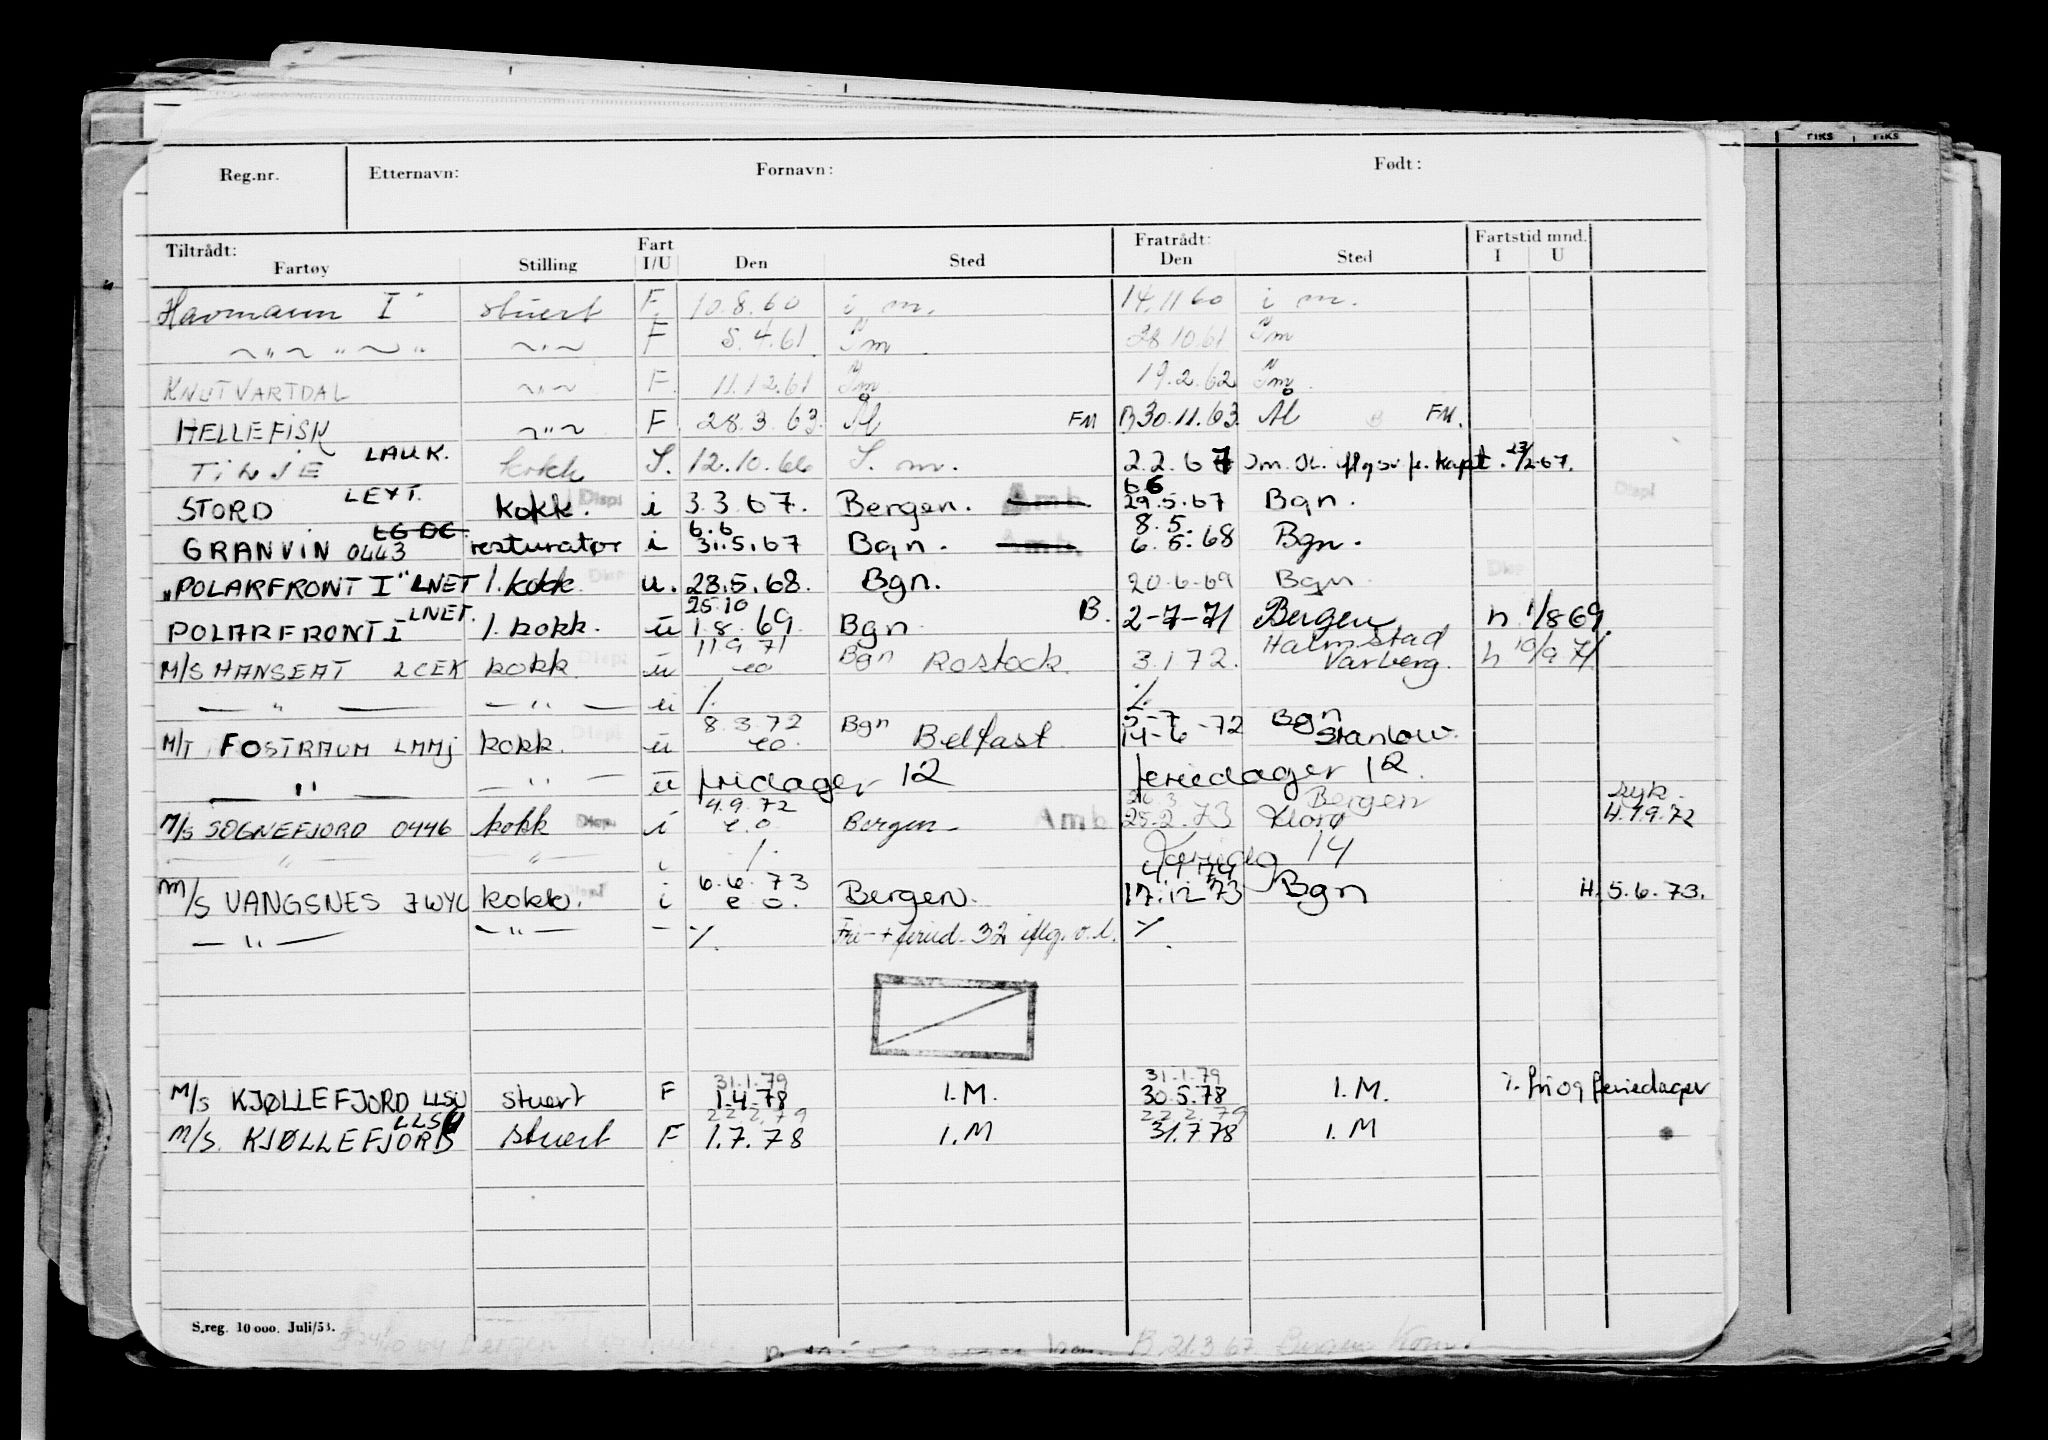 Reg.nr. Etternavn: Fornavn: Født:
Tiltrådt: Fartøy Stilling Fart I/U Den Sted Fratrådt: Den Sted Fartstid mnd. I U
Havmann I" stuert F. 10.8.60 i m. 14.11 60 i m.
~"~ " ~ " ~"~ F 5.4.61 28 10.61
KNUT VARTDAL ~"~ F. 11.12.61 19.2.62
HELLEFISK ~"~ F 28.3.63. Ål FM B 30.11.63. Ål FM.
TILJE LAUK. kokk S. 12.10.66 S. m. 2.2.67 Im. iflg sv fr. kapt. 23/2-67.
STORD LEXT. kokk. Displ i 3.3.67. Bergen. Amb. 6 6 29.5.67 Bgn. Displ
GRANVIN 0443 LGDC. resturatør i 6.6 31.5.67 Bgn. Amb. 8.5. 6.5.68 Bgn.
"POLARFRONT I" LNET 1. kokk. Displ u. 28.5.68. Bgn. 20.6.69 Bgn. Disp
POLARFRONT I LNET. 1. kokk. u 25.10 1.8.69. Bgn B. 2-7-71 Bergen h 1/8 69
M/S HANSEAT LCEK kokk. Displ u 11.9.71 eo Bgn Rostock. 3.1.72. Halmstad Varberg. h 10/9 71.
— " — — " — u ·/. ·/.
M/T FOSTRAUM LMMJ kokk. Displ u 8.3.72 eo. Bgn Belfast 5-7-72 14-6 Bgn Stanlow.
— " — — " — u fridager 12 feriedager 12.
M/S SOGNEFJORD 0446 kokk Displ. i 4.9.72 e.o Bergen Amb 26.3 25.2.73 Bergen Florø syk. H.1.9.72
— " — — " — i ·/. 14
M/S VANGSNES JWYL kokk. Displ i 6.6.73 e o. Bergen. 4.1.74 17.12.73 Bgn H. 5.6.73.
— " — — " — - ·/. Fri- + feried. 32 iflg. o.l. ·/.
M/S KJØLLEFJORD LLSU stuert F 31.1.79 1.4.78 I.M. 31.1.79 30.5.78 I.M. ·/. fri og feriedager
M/S. KJØLLEFJORD LLSU stuert F 22.2.79 1.7.78 I.M 22.2.79 31.7.78 I.M
S.reg. 10 000. Juli/53.
B. 21.3 67 Bergens Kom.